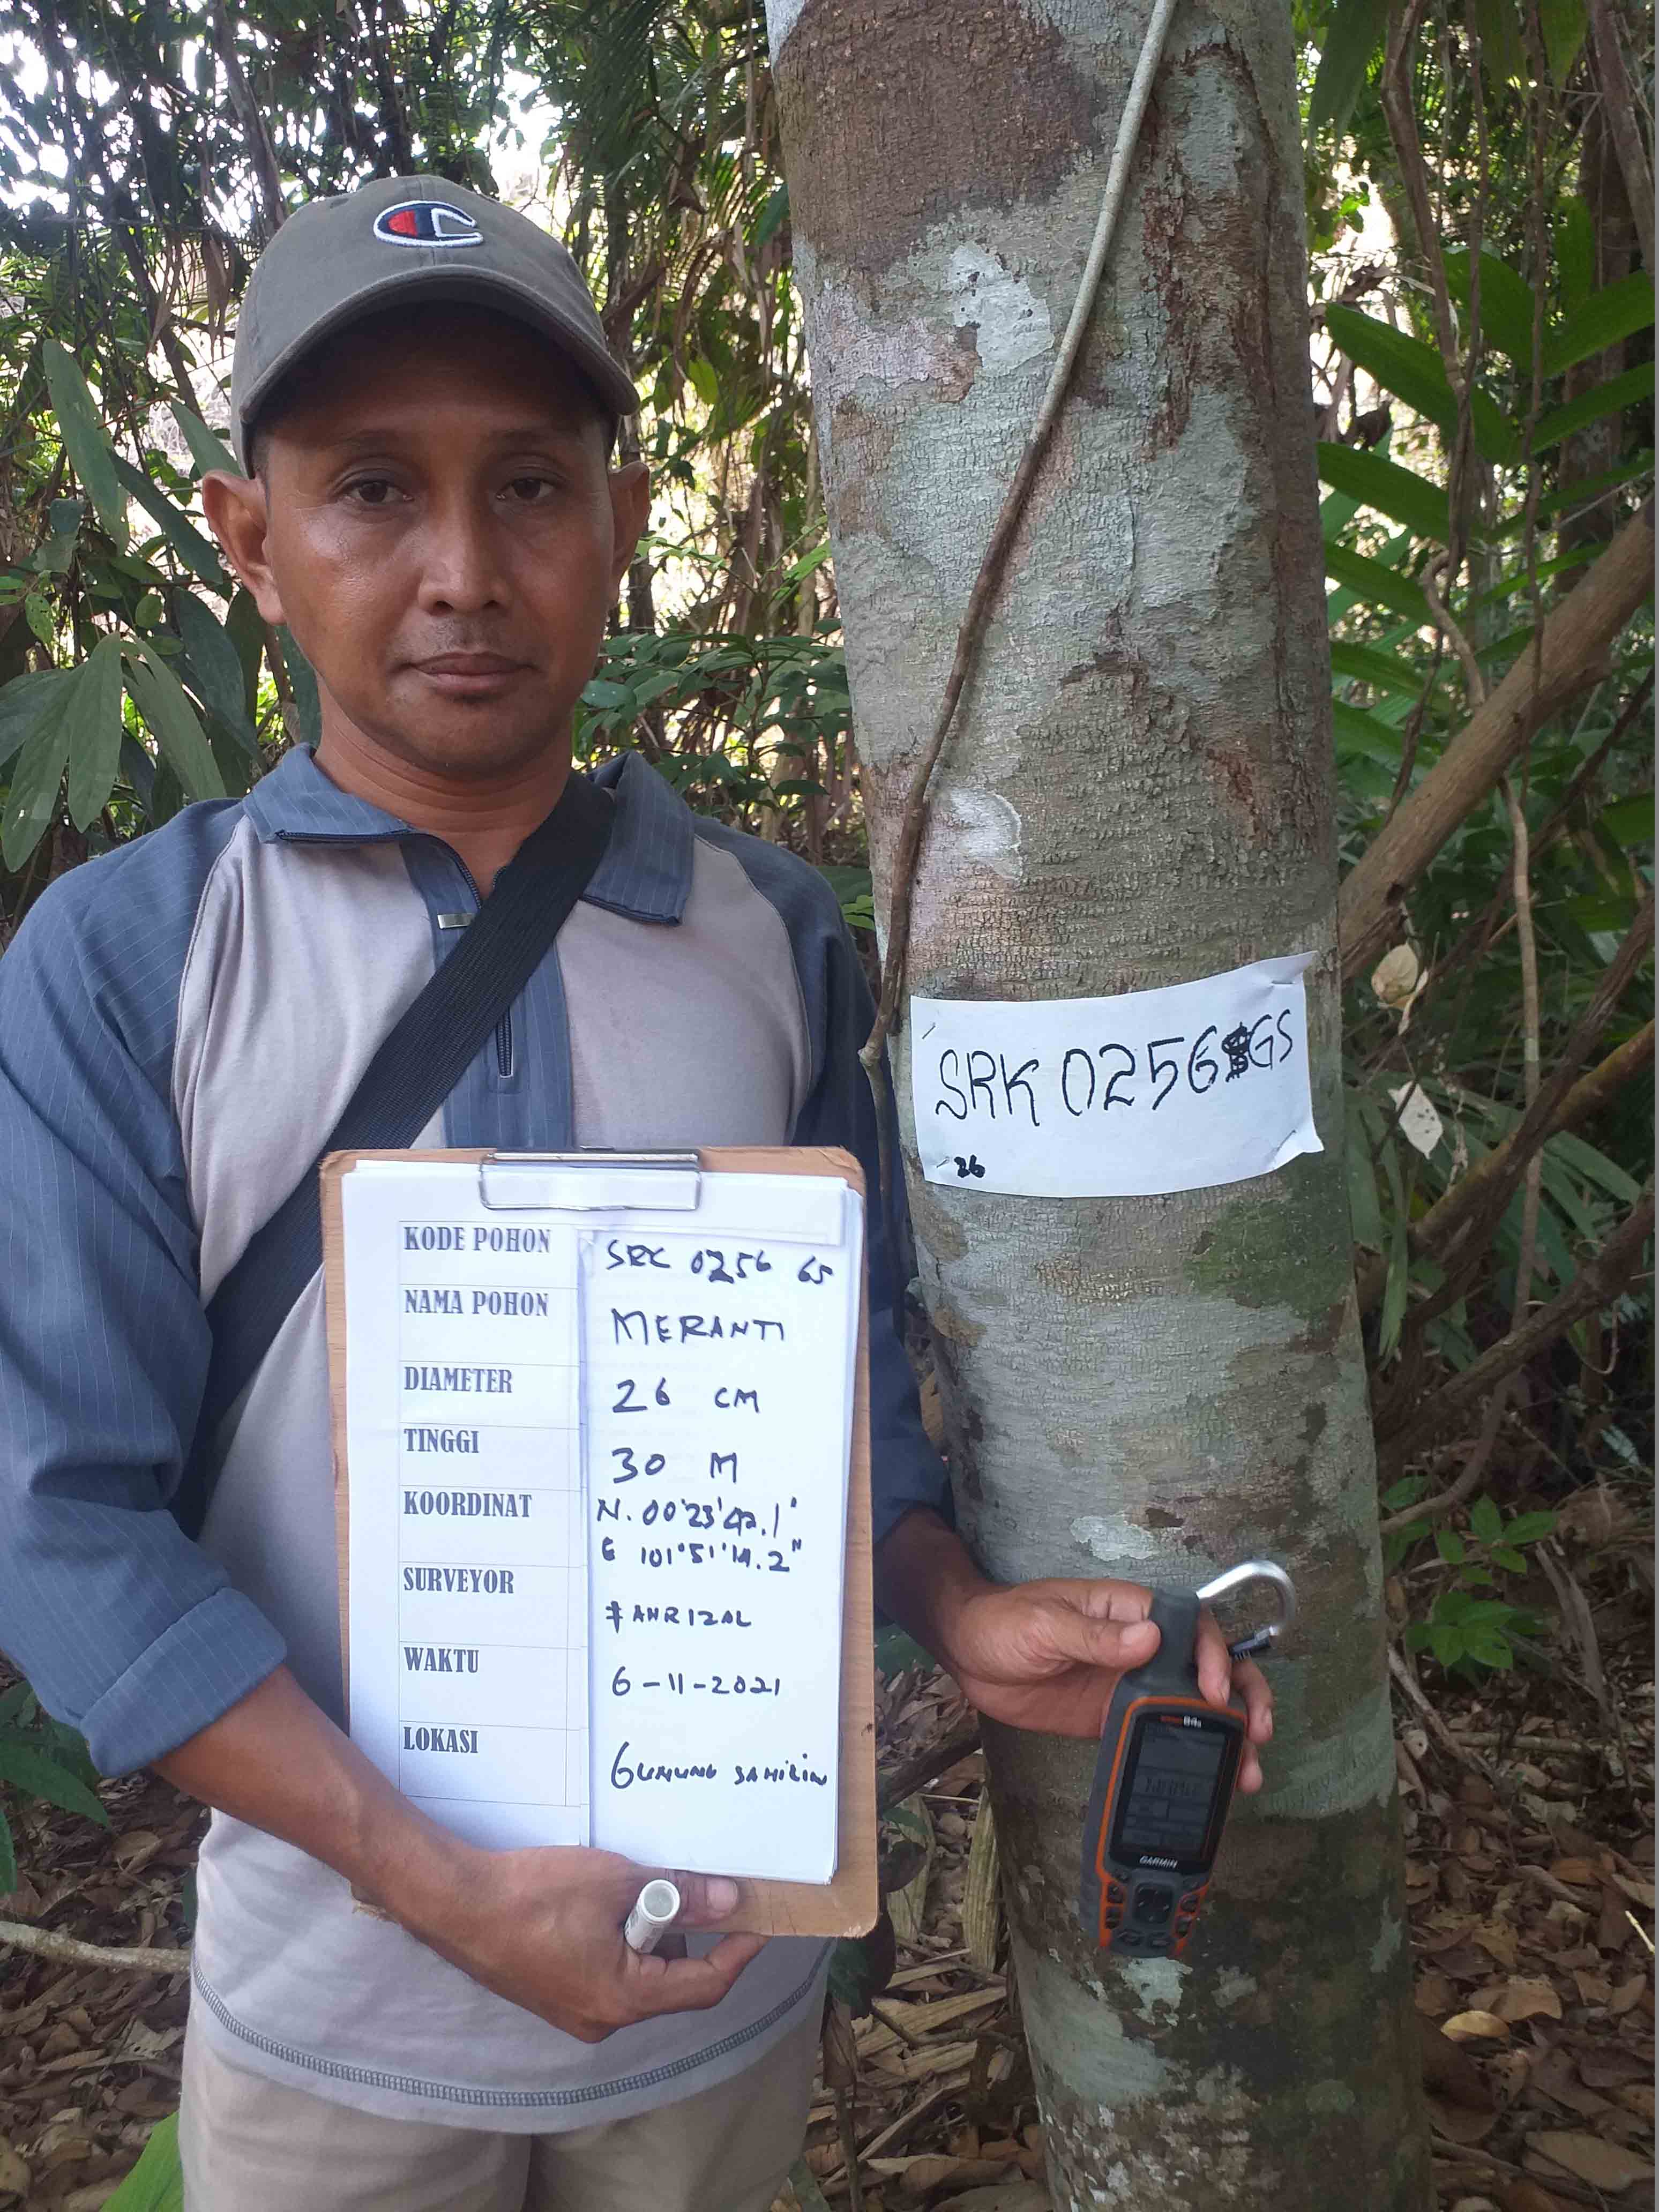 SRK 0256 GS
26
KODE POHON SRK 0256 GS
NAMA POHON MERANTI
DIAMETER 26 CM
TINGGI 30 M
KOORDINAT N. 00°23'42.1"
E 101°51'14.2"
SURVEYOR FAHRIZAL
WAKTU 6-11-2021
LOKASI GUNUNG SAHILIN
GARMIN